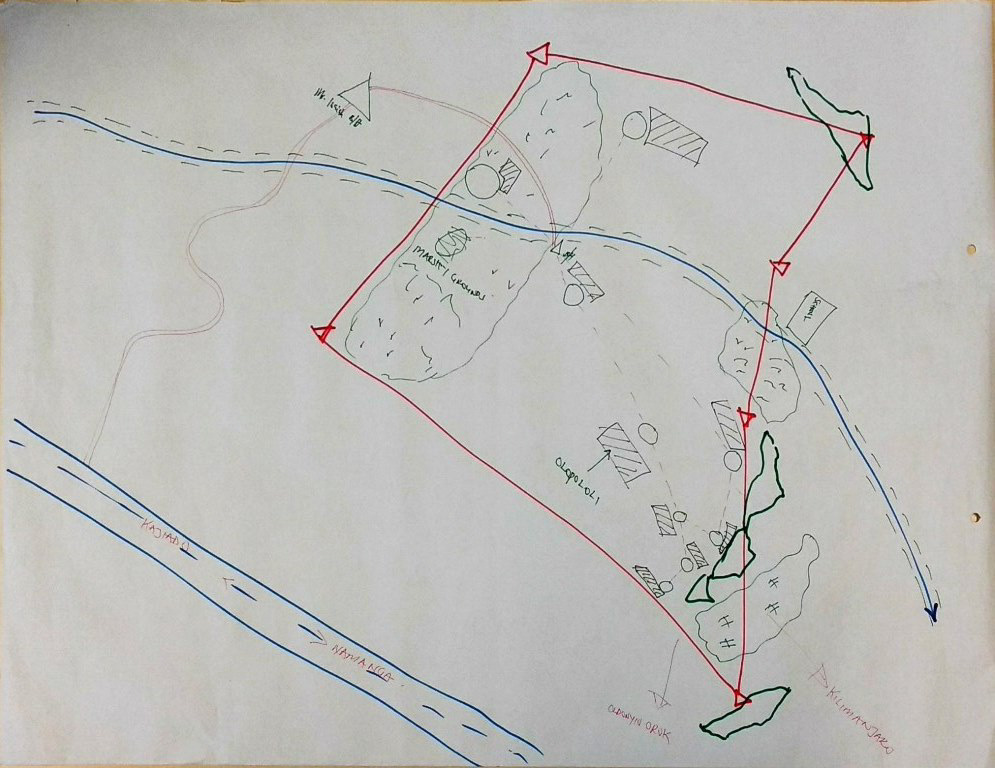 MARSHI GROUNDS
SCHOOL
OLOPOLOLI
KAJIADO
NAMANGA
OLDONYIO OROK
KILIMANJARO